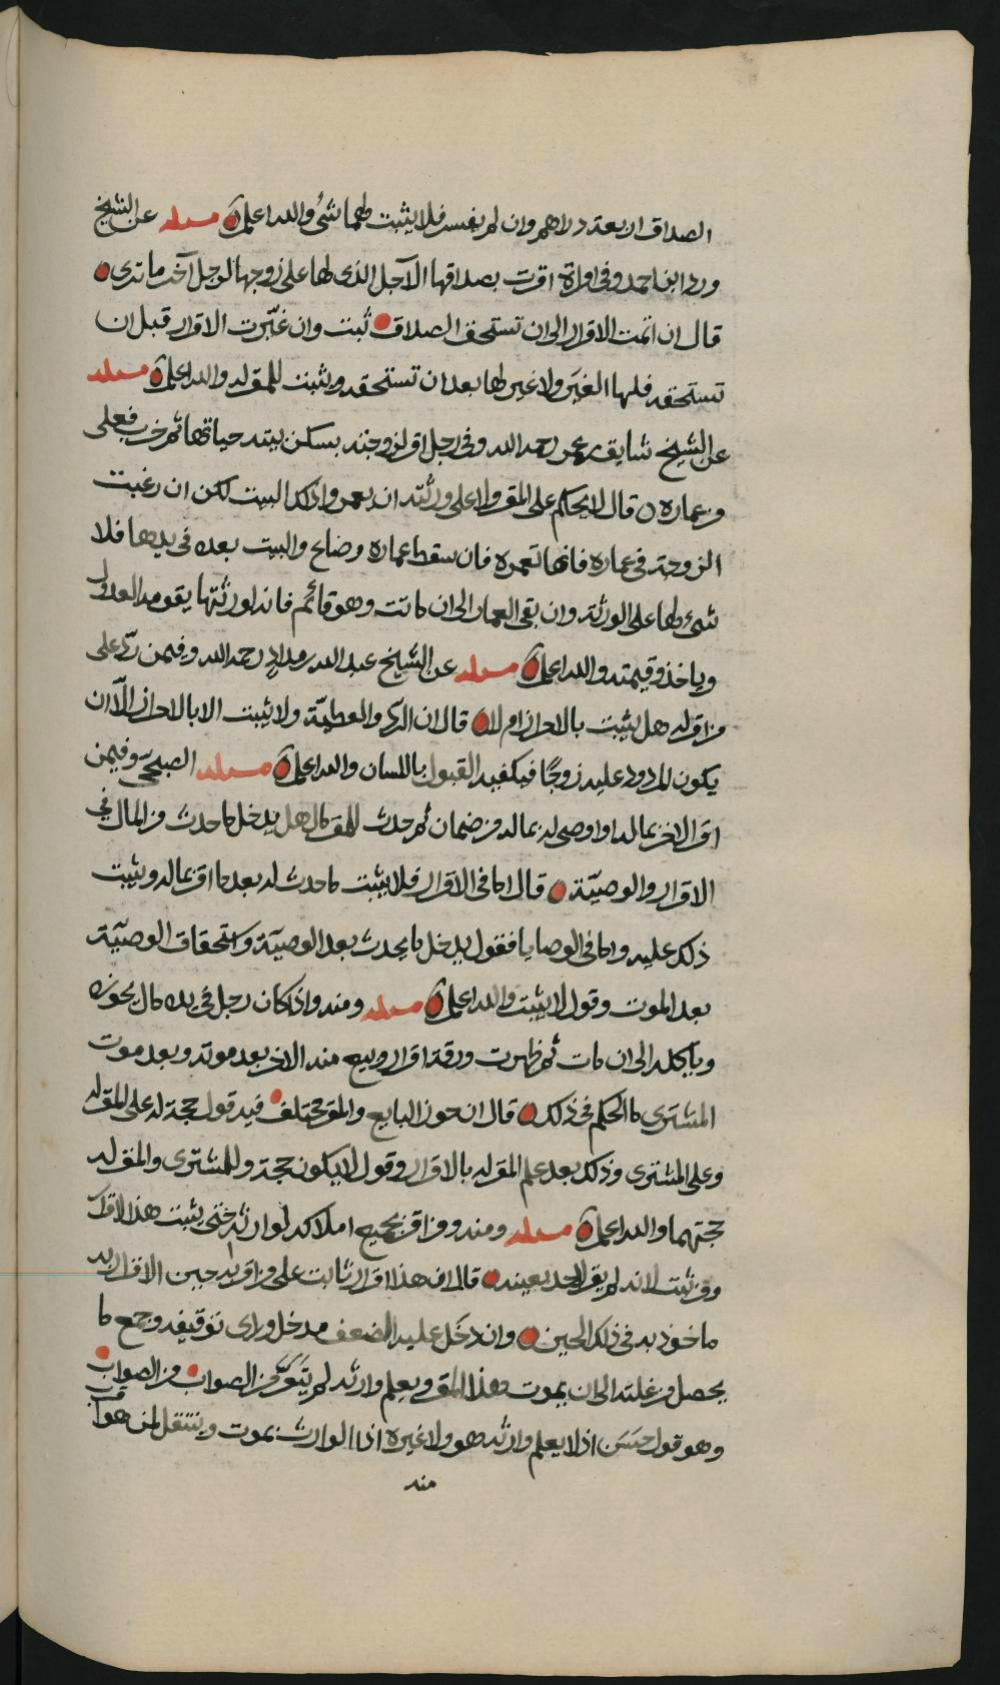 الصداق اربعة دراهم وان لم يفسر فلا يثبت لهما شئ والله اعلم مسئله عن الشيخ
ورد ابن احمد وفي امراة اقرت بصداقها الآجل الذي لها على زوجها لرجل آخر ما ترى
قال ان اتمت الاقرار الى ان تستحق الصداق ثبت وان غيّرت الاقرار قبل ان
تستحقه فلها الغير ولا غير لها بعد ان تستحقه ويثبت للمقر له والله اعلم مسئله
عن الشيخ شايق بن عمر رحمه الله وفي رجل اقر لزوجته بسكن بيته حياتها ثم خرب فعلى
من عماره قال لا يحكم على المقر ولا على ورثته ان يعمروا ذلك البيت لكن ان رغبت
الزوجة في عماره فانها تعمره فان سقط عماره وضاع والبيت بعده في يدها فلا
شئ لها على الورثة وان بقى العمار الى ان ماتت وهو قائم فانه لورثتها يقومه العدول
وياخذ وقيمته والله اعلم مسئله عن الشيخ عبد الله بن مداد رحمه الله وفيمن ردّ على
من اقر له هل يثبت بالاحراز ام لا قال ان الرد والعطيّة ولا يثبت الا بالاحراز الّا ان
يكون المردود عليه زوجًا فيكفيه القبول باللسان والله اعلم مسئله الصبحيّ وفيمن
اقر لاخر بماله او اوصى له بماله من ضمان ثم حدث للمقر مال هل يدخل ما حدث من المال في
الاقرار والوصيّة قال اما في الاقرار فلا يثبت ما حدث له بعد ما اقر بماله ويثبت
ذلك عليه واما في الوصايا فقول يدخل ما يحدث بعد الوصيّة واستحقاق الوصيّة
بعد الموت وقول لا يثبت والله اعلم مسئله ومنه واذا كان رجل في يده مال يحوزه
وياكله الى ان مات ثم ظهرت ورقة اقرار وبيع منه الاخر بعد موته وبعد موت
المشترى ما الحكم في ذلك قال ان حوز البايع والمقر مختلف فيه قول حجة له على المقر له
وعلى المشترى وذلك بعد علم المقر له بالاقرار وقول لا يكون حجة وللمشترى والمقر له
حجتهما والله اعلم مسئله ومنه ومن اقر بجميع املاكه لوارثه حتى يثبت هذا الاقرار
ومن ثبت لانه لم يقر لاحد بعينه قال ان هذا اقرار ثابت على من اقر به حين الاقرار به
ماخوذ به في ذلك الحين وان دخل عليه الضعف مدخل وراى توقيفه وجمع ما
يحصل من غلته الى ان يموت هذا المقر ويعلم وارثه لم يتعرّ من الصواب من الصواب
وهو قول حسن اذ لا يعلم وارثه هو ولا غيره اذ الوارث يموت وينتقل لمن هو اقرب
منه